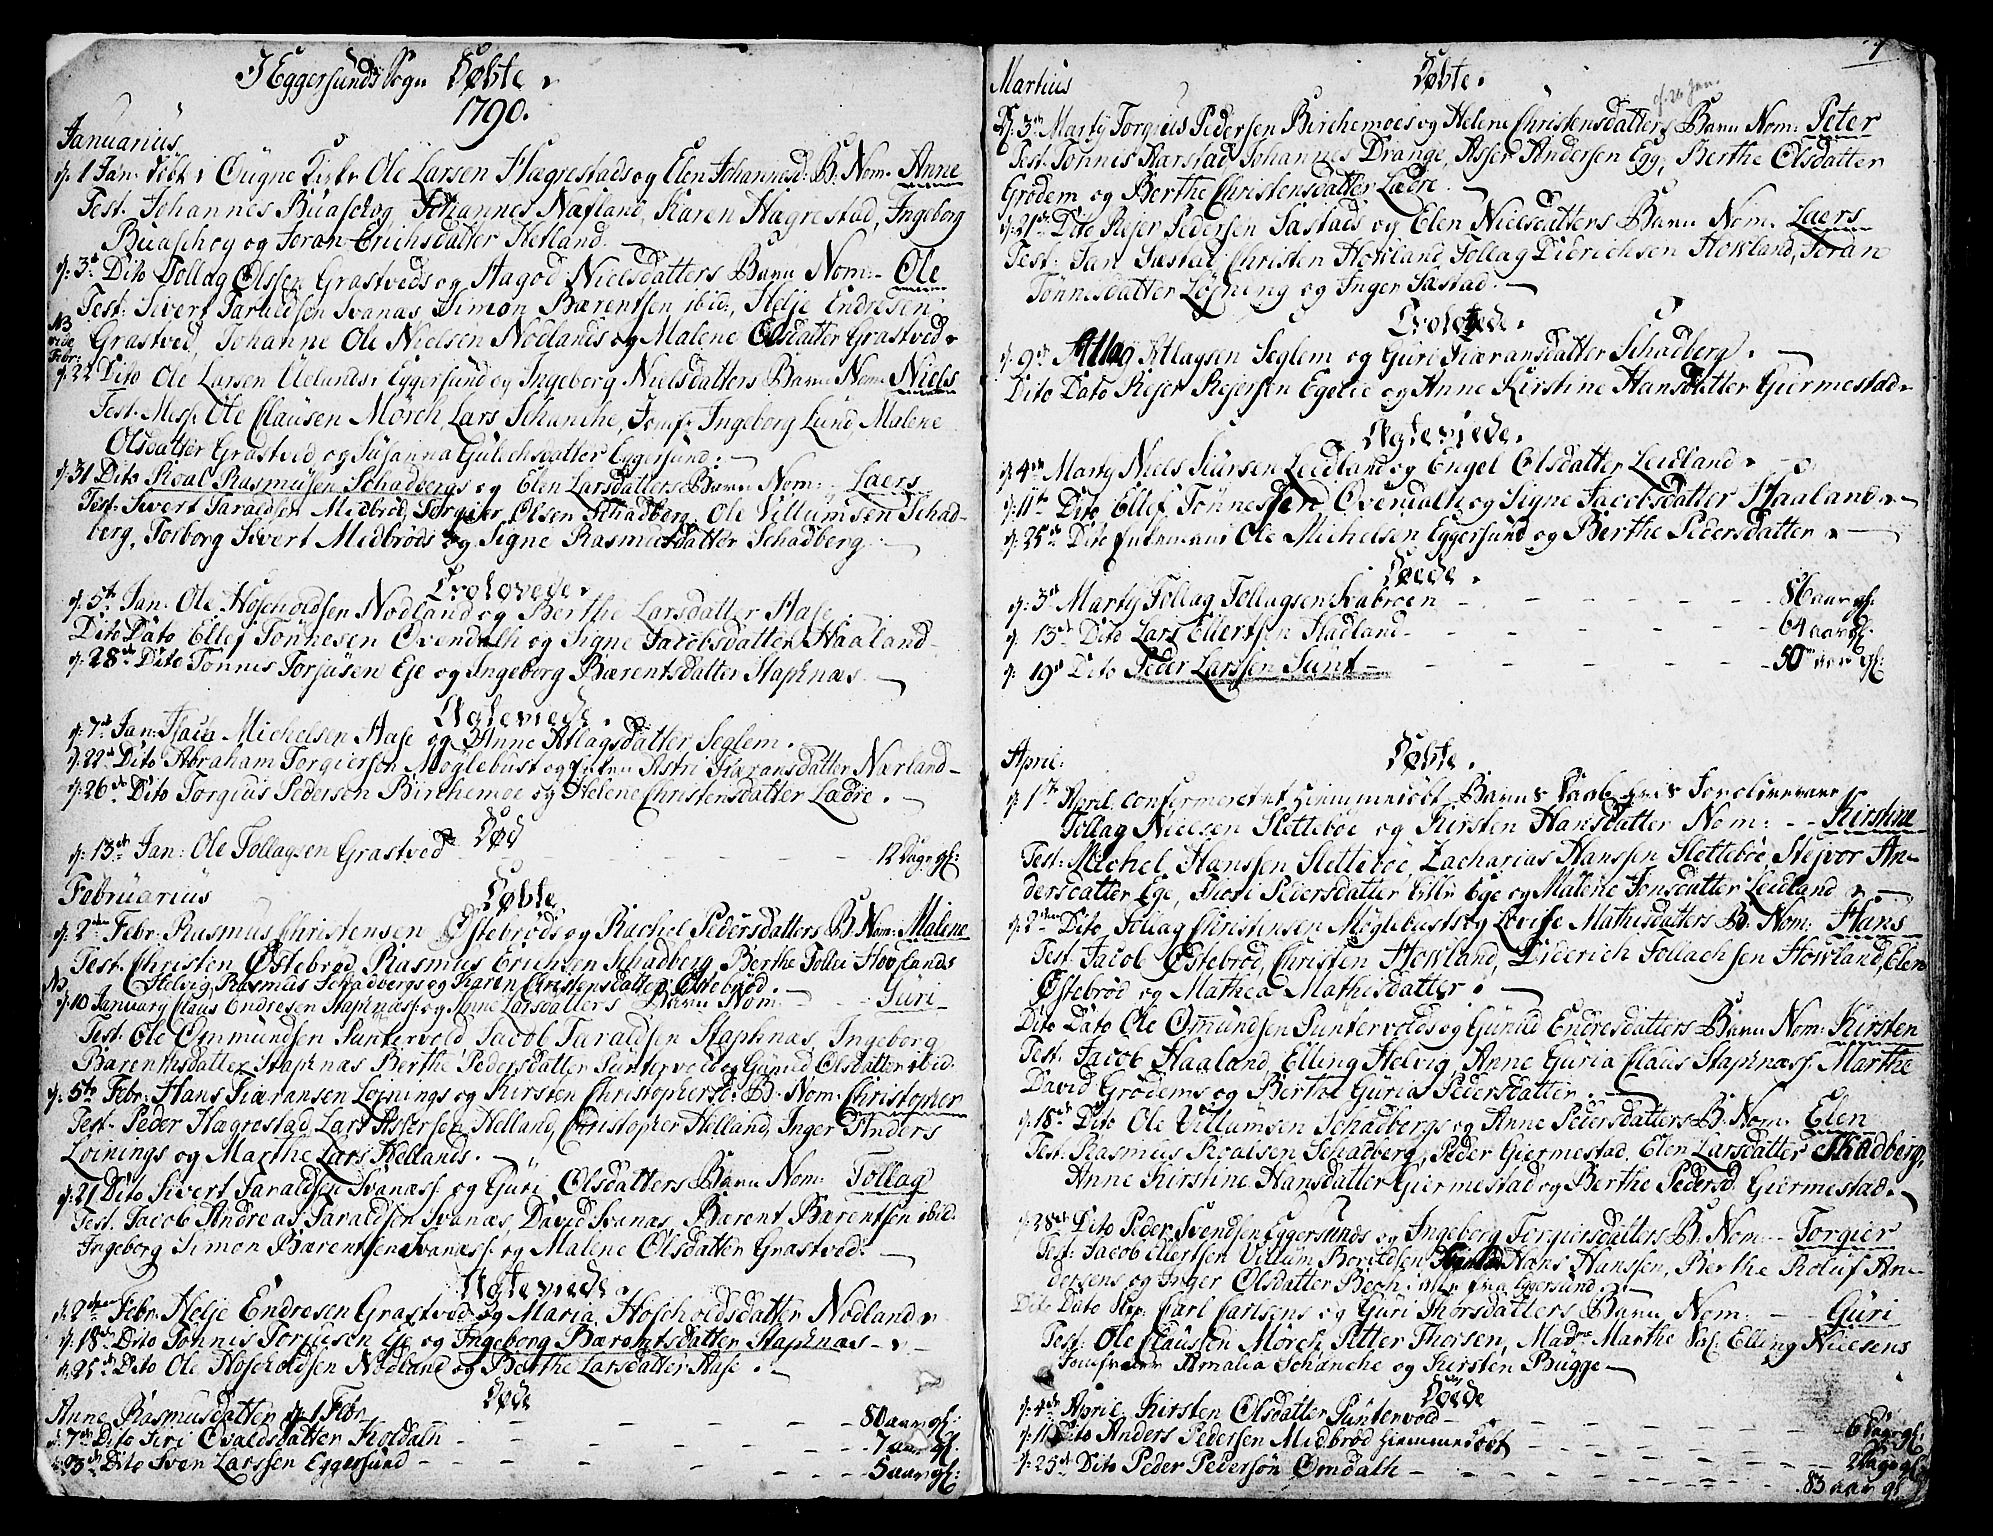 I Eggersunds Sogn Døbte.
1790.
Januarius
d: 1 Jan: døbt i Kirke Ole Larsen Hægrestads og Elen Johannesd: B: Nom: Anne
Test. Johannes Buaschog, Johannes Næfland, Karen Hagrestad, Ingeborg
Buaschog og Joran Erichsdatter Hetland.
d: 3d Dito Tollag Olssen Grastveds og Aagod Nielsdatters Barn Nom: Ole
Test: Sivert Taraldsen Svanæs, Simon Bærentsen ibid:, Helje Endresen
Grastved, Johanne Ole Nielsen Nodlands og Malene Olsdatter Grastved.
NB vide Febr:
d: 22 Dito Ole Larsen Ueland i Eggersund og Ingeborg Nielsdatters Barn Nom: Niels
Test. Ole Clausen Mörch, Lars Schanche, Jomf: Ingeborg Lund Malene
Olsdatter Grastved og Susanna Gulichsdatter Eggersund.
d: 31 Dito Roal Rasmusen Schadbergs og Elen Larsdatters Barn Nom: Laers
Test. Sivert Taraldsen Midbröd, Torgier Olsen Schadberg, Ole Villumsen Schad-
berg, Torborg Sivert Midbröds og Signe Rasmusdatter Schadberg.
Trolovede.
d: 5te Jan: Ole Hoscholdsen Nodland og Berthe Larsdatter Aase
Dito Dato Ellef Tönnesen Ovendalh og Signe Jacobsdatter Haaland
d: 28de Dito Tönnis Torjusen Eje og Ingeborg Bærentsdatter Stapnæs.
Ægteviede.
d: 7de Jan: Isach Michelsen Aase og Anne Atlagsdatter Seglem.
d: 22de Dito Abraham Torgiersen Möglebust og Astri Siæransdatter Nærland
d: 26de Dito Torgius Pedersen Birchemoe og Helene Christensdatter Lædre.
Död
d: 13de Jan: Ole Tollagsen Grastved 12 Dage gl:
Februarius
Døbte
d: 2den Febr: Rasmus Christensen Östebröds og Rachel Pedersdatters B: Nom: Malene
Test. Christen Östebröd, Rasmus Erichsen Schadberg, Berthe Tolli Hovlands
Helvig Rasmus Schadbergs og Karen Christensdatter Östebröd.
NB
d: 10 January Claus Endresen Stapnæs: og Anne Larsdatters Barn Nom: Guri
Test. Ole Ommundsen Puntervold Jacob Taraldsen Stapnæs, Ingeborg
Barentsdatter Stapnæs Berthe Pedersdatter Puntervold og Gunild Olsdatter ibid.
d: 5te Febr: Hans Siæransen Löjnings og Kirsten Christophersd: B: Nom: Christopher
Test. Peder Hægrestad, Lars Assersen Helland, Christopher Helland, Inger Anders
Löinings og Marthe Lars Hellands.
d: 21 Dito Sivert Taraldsen Svanæs: og Guri Olsdatters Barn Nom: Tollag
Test. Jacob Andreas Taraldsen Svanæs, David Svanæs, Bærent Bærentsen ibid:
Ingeborg Simon Bærentsen Svanæs: og Malene Olsdatter Grastved.
Ægteviede.
d: 2den Febr: Helje Endresen Grastved og Maria Hoscholdsdatter Nodland
d: 18de Dito Tonnis Torjusen Eje og Ingeborg Bærentsdatter Stapnæs
d: 25de Dito Ole Hoscholdsen Nodland og Berthe Larsdatter Aase.
Döde
Anne Rasmusdatter d: 1 Febr 80 aar gl:
d: 7de Dito Siri Ovaldsdatter Koldaln 7 aar gl:
d: 23de Dito Sven Larssen Eggersund 5 aar gl:
Martius
Døbte.
d: 26 Jan.
D: 3de Marty Torgius Pedersen Birchemoes og Helene Christensdatters Barn Nom: Peter
Test. Tönnis Aarstad, Johannes Drange, Asser Andersen Egg, Berthe Olsdatter
Grödem og Berthe Christensdatter Lædre.
d: 21de Dito Rejer Pedersen Sastads og Elen Nielsdatters Barn Nom: Laers
Test: Jan Sastad, Christen Howland, Tollag Didrichsen Howland, Joran
Tönnisdatter Löjning og Inger Sastad.
Trolovede.
d: 9de Atlag Atlagsen Seglem og Guri Siæransdatter Schadberg.
Dito Dato Rejer Rejersen Egelie og Anne Kirstine Hansdatter Giermestad
Ægteviede.
d: 4de Marty Niels Siursen Leidland og Engel Olsdatter Leidland.
d: 11te Dito Ellef Tönnessen Ovendalh og Signe Jacobsdatter Haaland
d: 25de Dito Ole Michelsen Eggersund og Berthe Pedersdatter
Döde.
d: 3de Marty Tollag Tollagsen Svabroen 86 aar gl:
d: 13de Dito Lars Ellertsen Hadland 64 aar gl:
d: 19de Dito Peder Larssen Sunt 50 aar gl:
April:
Døbte.
d: 1ste April confermeret et hiemmedöbt Barns Daab hvis Forældre ere
Tollag Nielsen Sletteböe og Kirsten Hansdatter Nom: Kirstine
Test: Michel Hanssen Sletteböe, Zacharias Hanssen Sletteböe, Stejvor An-
dersdatter Ege, Thori Pedersdatter Lille Ege og Malene Jonsdatter Leidland
d: 2den Dito Tollag Christensen Möglebusts og Lovise Mathisdatters B: Nom: Hans
Test. Jacob Östebröd, Christen Howland, Diderich Tollachsen Howland, Elen
Östebröd og Mathea Mathisdatter.
Dito Dato Ole Omundsen Puntervolds og Gunild Endresdatters Barn Nom: Kirsten
Test. Jacob Haaland, Elling Helvig, Anne Guria Claus Stapnæs: Marthe
David Grödems og Berthe Guria Pedersdatter.
d: 18de Dito Ole Villumsen Schadbergs og Anne Pedersdatters B: Nom: Elen
Test. Rasmus Roalsen Schadberg, Peder Giermestad, Elen Larsdatter Skadberg,
Anne Kirstine Hansdatter Giermestad og Berthe Pedersd. Giermestad.
d: 28de Dito Peder Svendsen Eggersunds og Ingeborg Torgiersdatters B: Nom: Torgier
Test: Jacob Ellertsen, Villum Boreldsen Hans Hanssen, Berthe Roluf An-
dersens og Inger Olsdatter Bech alle fra Eggersund.
Dito Dato Carl Carlsens og Guri Thorsdatters Barn Nom: Guri
Test: Ole Claussen Mörch, Petter Thorsen, Mad: Marthe Sal: Elling Nielsens
Jomfruer Amalia Schanche og Kirsten Bugge
Döde
d: 4de April, Kirsten Olsdatter Puntervold 6 Dage gl:
d: 11 Dito Anders Pedersen Midbröd hiemmedöbt 2 Dage gl:
d: 25de Dito Peder Pedersön Omdalh 83 aar gl: